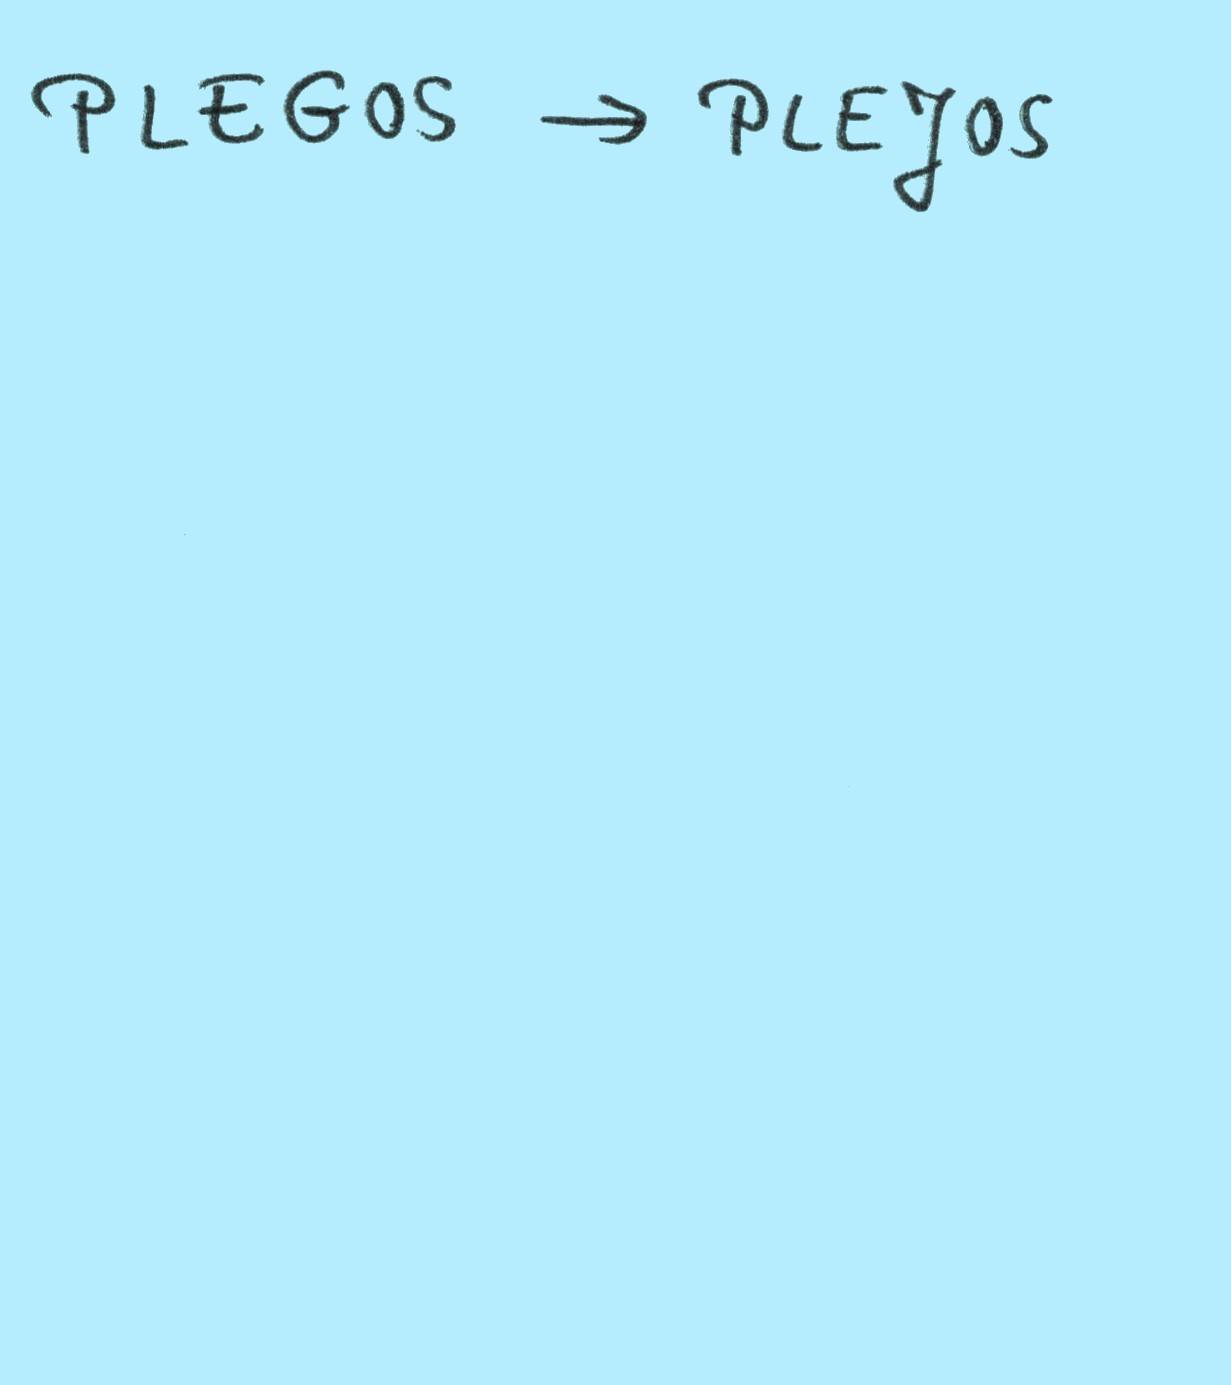 PLEGOS → PLEJOS